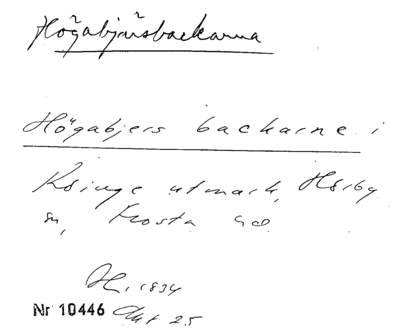 Högabjärsbackarna
Högabjers backarne i
Ksinge utmark, Hörby
sn, Frosta hd
H. 1834
Nr 10446 Akt 25